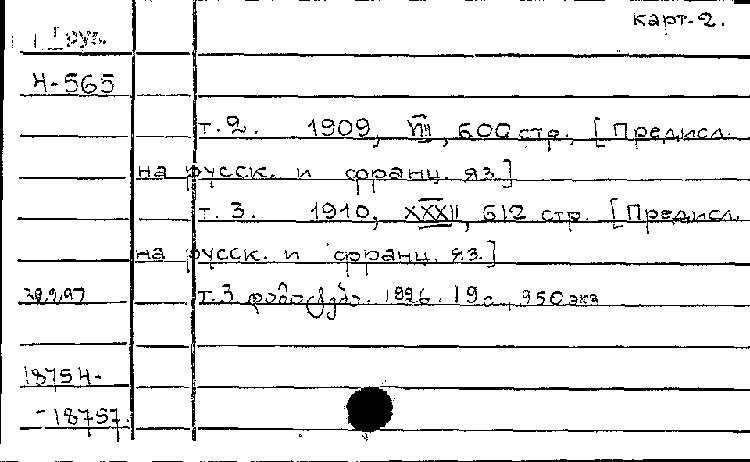 карт-2.
Груз.
Ч-565
т. 2. 1909, VIII, 600 стр. [Предисл.
на русск. и франц. яз.]
т. 3. 1910, XXXII, 612 стр [Предисл.
на русск. и франц. яз.]
т. 3 დამატება. 1996. 19 с, 950 экз
18754-
-18757.